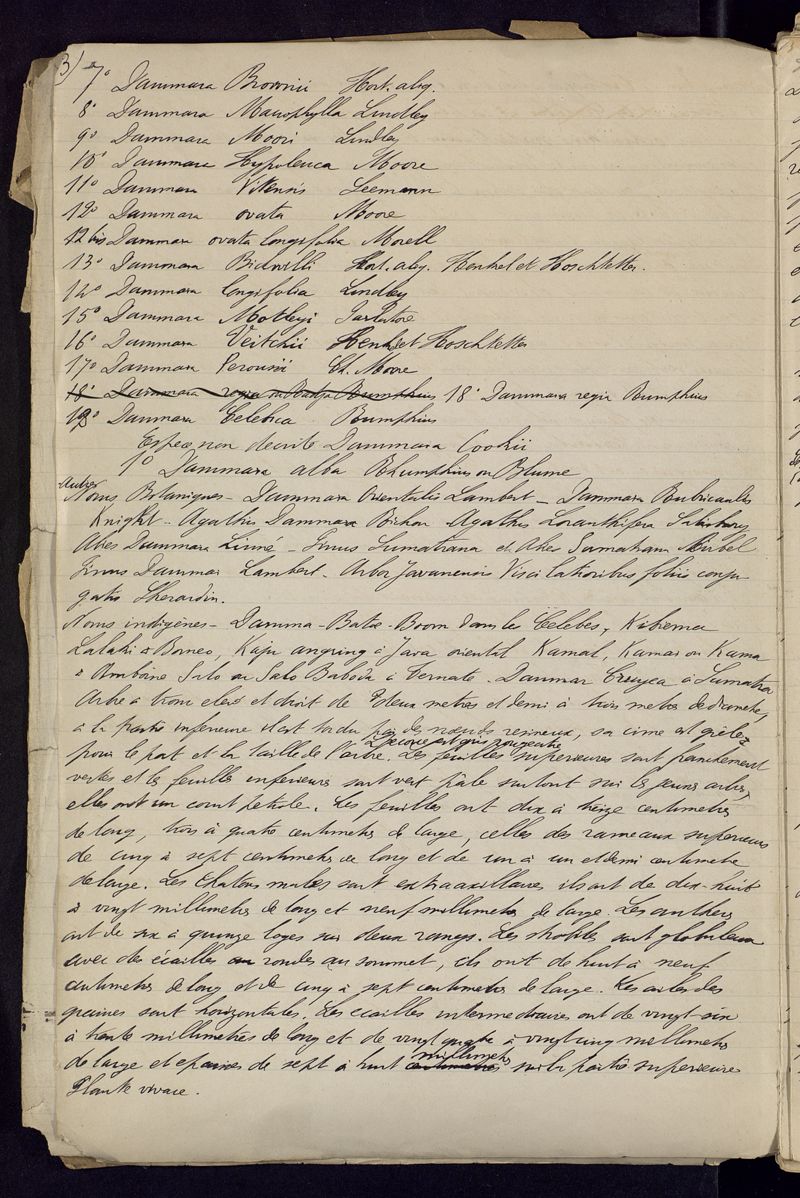 3)
7° Dammara Brownii Hort. aliq.
8° Dammara Macrophylla Lindley
9° Dammara Moori Lindley
10° Dammara Hypoleuca Moore
11° Dammara Vitiensis Seemann
12° Dammara ovata Moore
12 bis Dammara ovata longifolia Morell
13° Dammara Bidwilli Hort. aliq. Henkel et Hoschtetter.
14° Dammara longifolia Lindley
15° Dammara Motleyi Parlatore
16° Dammara Veitchii Henkel et Hoschtetter
17° Dammara Perousii Ch. Moore
18° Dammara regia Rumphius 18° Dammara regia Rumphius
19° Dammara Celebica Rumphius
Espece non decrite Dammara Cookii
1° Dammara alba Rhumphius ou Blume
Autres
Noms Botaniques - Dammara Orientalis Lambert - Dammara Rubricaulis
Knight - Agathis Dammara Richar - Agathis Loranthifera Salisbury
Abies Dammara Linné - Pinus Sumatrana et Abies Sumatrana Mirbel
Pinus Dammar Lambert - Arbor Javanensis Visci latioribus foliis conju
gatis Sherardin.
Noms indigènes - Damma - Batae - Boom dans les Celebes,
Lalaki à Borneo, Kaju angring à Java oriental Kamal, Kamar ou Kama
à Amboine Salo ou Salo Baboda à Ternate - Dammar à Sumatra
Arbre à tronc elevé et droit de deux metres et demi à trois metres de diametre,
à la partie inferieure il est tordu par des nœuds resineux, sa cime est grêle
L'ecorce est gris rougeatre
pour le port et la taille de l'arbre. Les feuilles superieures sont franchement
vertes et les feuilles inferieures sont vert pâle surtout sur les jeunes arbres,
elles ont un court petiole. Les feuilles ont dix à treize centimetres
de long, trois à quatre centimetres de large, celles des rameaux superieurs
de cinq à sept centimetres de long et de un à un et demi centimetre
de large. Les Chatons mâles sont extraaxillaires ils ont de dix-huit
à vingt millimetres de long et neuf millimetres de large. Les anthers
ont de six à quinze loges sur deux rangs. Les strobiles sont globuleux
avec des écailles rondes au sommet, ils ont de huit à neuf
centimetres de long et de cinq à sept centimetres de large. Les ailes des
graines sont horizontales. Les ecailles intermediaires ont de vingt-six
à trente millimetres de long et de vingt quatre à vingt cinq millimetres
millimetres
de large et epaisses de sept à huit centimetres sur la partie superieure
Plante vivace.